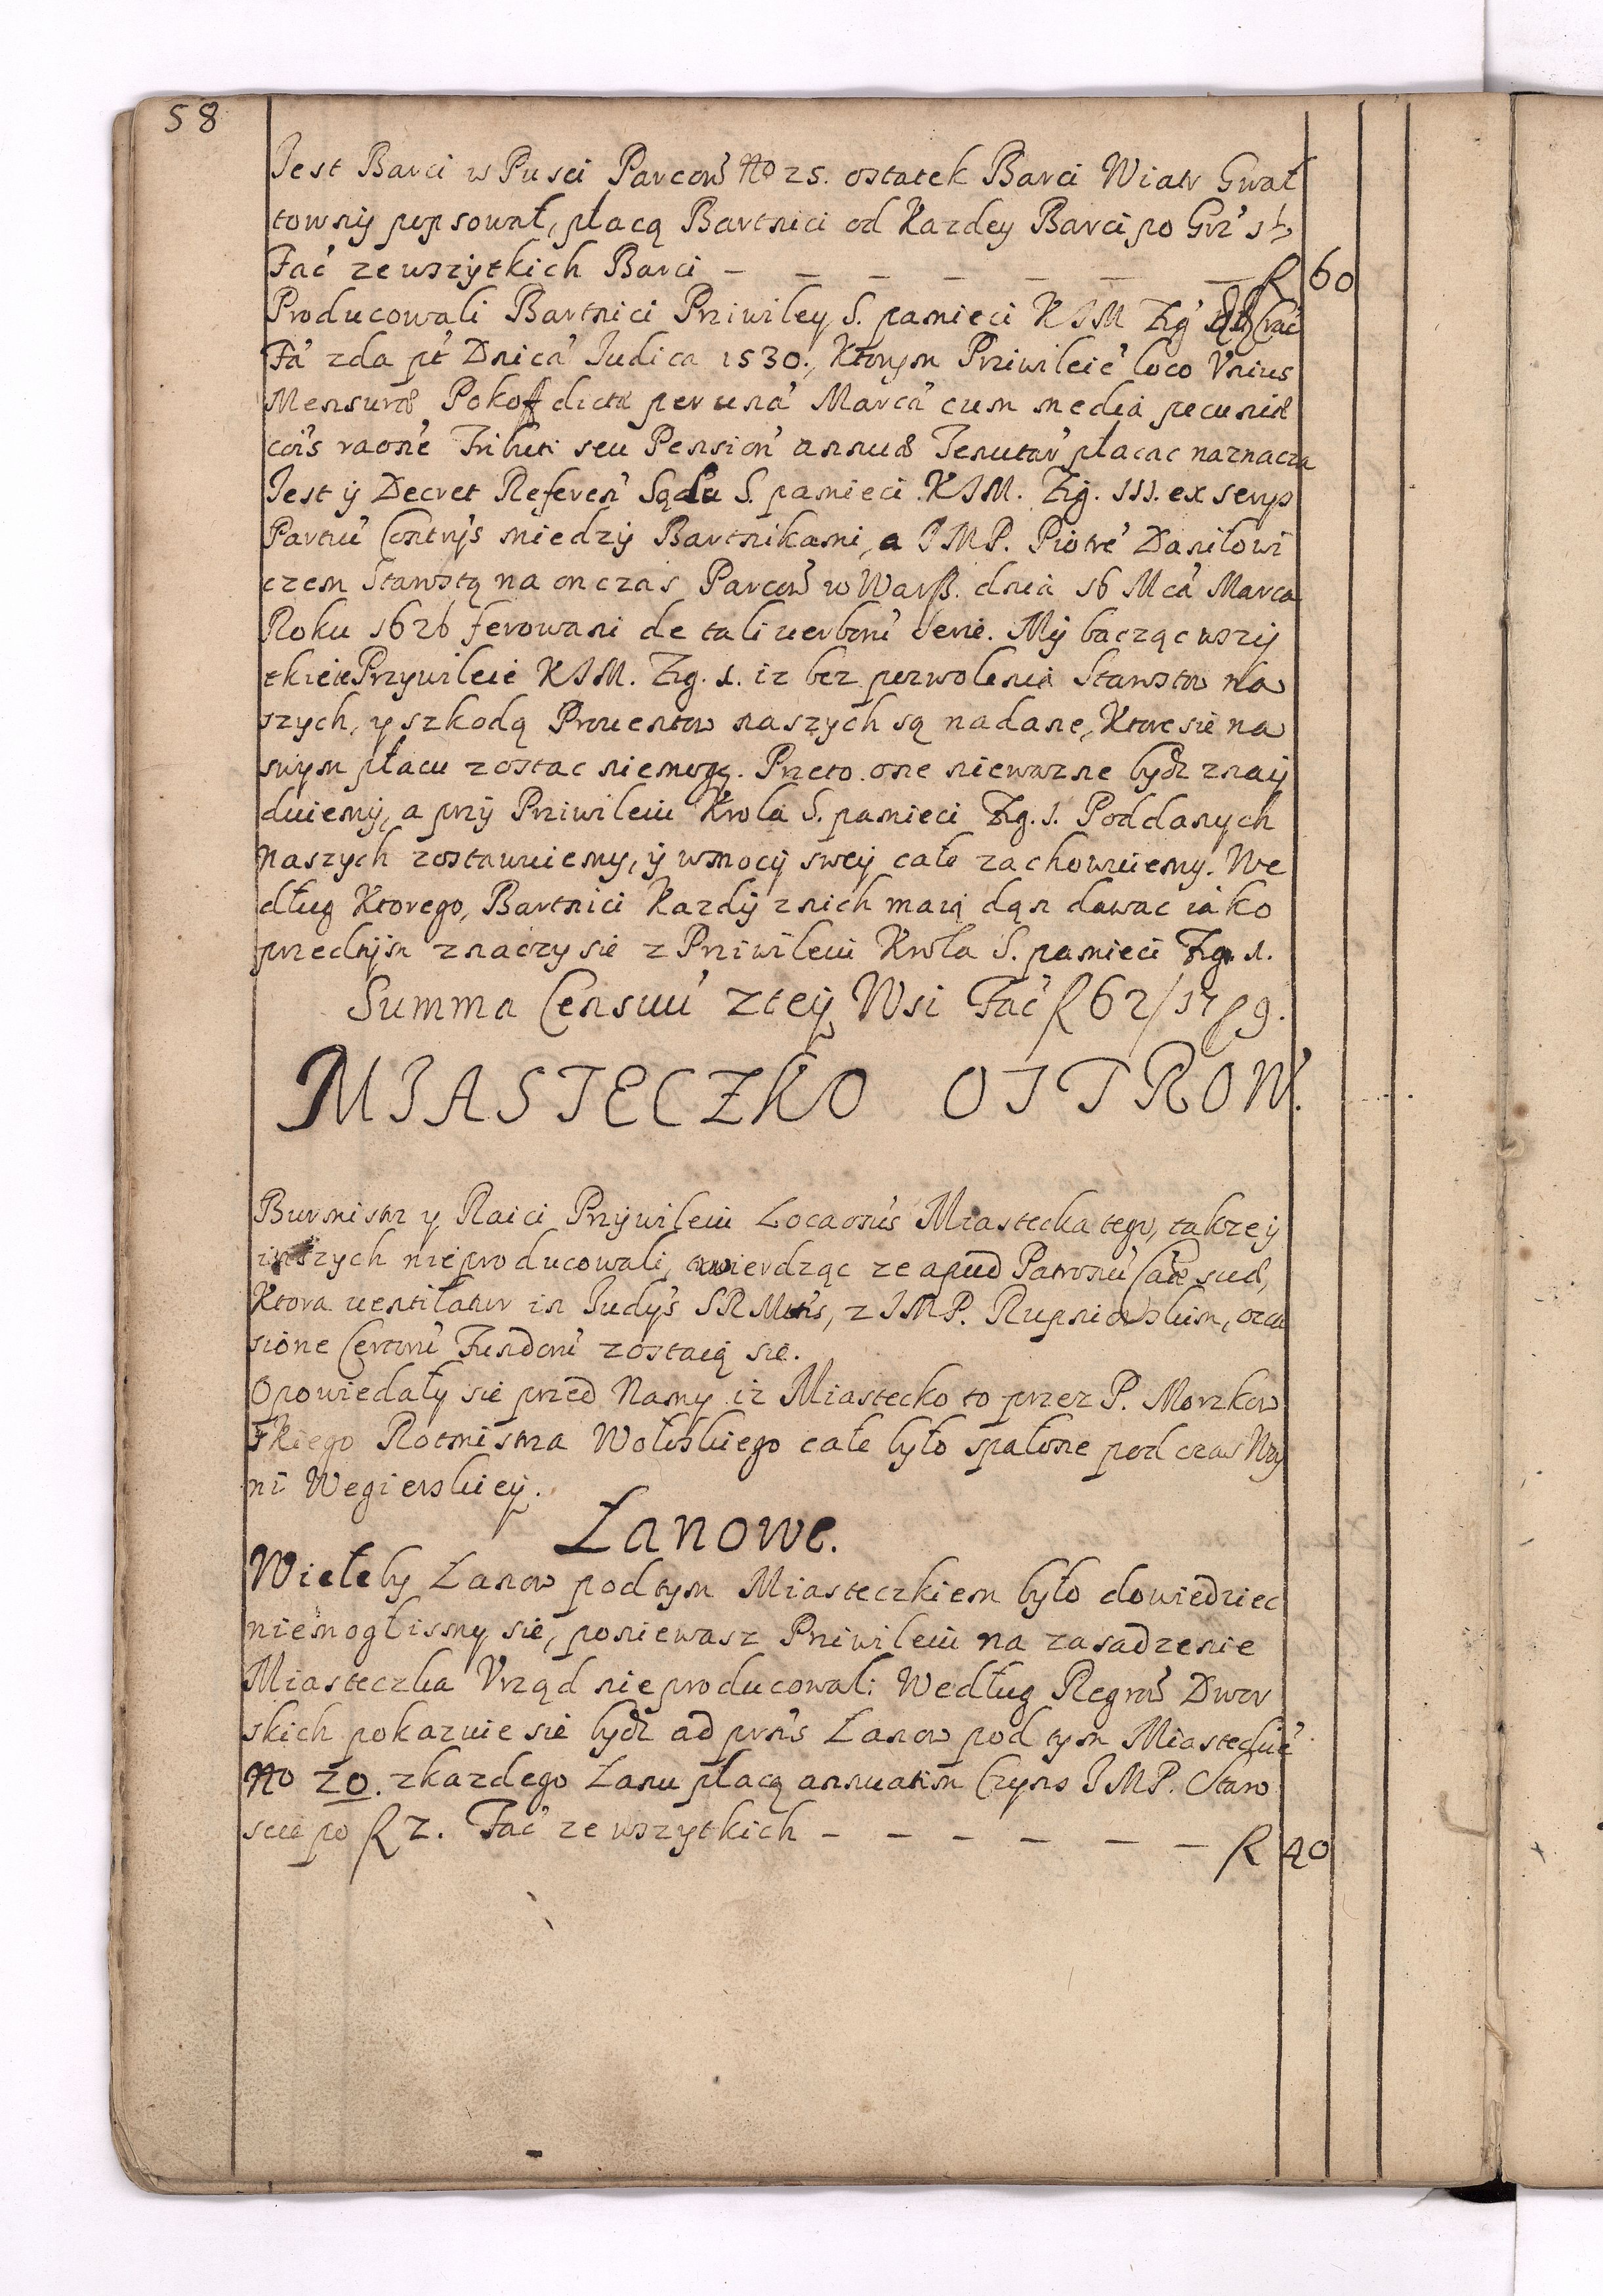 58
Jest Barci w Pusci Parcow No 25. ostatek Barci Wiatr Gwał
towny popsował, płacą Bartnici od Kazdey Barci po Grz
Fac ze wszytkich Barci – – – – – – – f 60
Producowali Bartnici Priwiley S. pamieci KJM Zig
Fa zda pt Dnica Judica 1530., Ktorym Priwileie loco Unius
Mensuræ dictæ per una Marca cum media pecuniæ
cois raone Tributi seu Pension annuæ Tenutar płacac naznacza
Jest ij Decret Referen Sądu S. pamieci KJM. Zig. III. ex serys
Partiu Contrys miedzij Bartnikami, a JMP. Piotre Daniłowi
czem Starostą na on czas Parcow w Warß. dnia 16 Mca Marca
Roku 1626 ferowani de tali verboru serie. Mij bacząc wszij
tkieie Przywileie KJM. Zig. 1. iz bez pozwolenia Starostow na
szych, y szkodą Prouentow naszych są nadane, Ktore sie na
swym placu zostac niemogą. Przeto one niewazne bydz znaij
duiemy, a prij Priwileiu Krola S. pamieci Zig. 1. Poddanych
naszych zostawuiemy, ij w mocij sweij cale zachowuiemy. We
dług Ktorego, Bartnici Kazdij z nich maią dan dawac iako
przednijm znaczy sie z Priwileiu Krola S. pamieci Zig. 1.
Summa Censuu z teij Wsi Fac f 62/17 pg.
MIASTECZKO OSTROW.
Burmistrz y Raici Prijwileiu Locaonis Miastecka tego, takze ij
inszych nie producowali, twierdząc ze apud Patronu Cae suæ,
Ktora uentilatur in Judys SRMtis, z JMP. Rupniowskim,
sione Certoru Fundoru zostaią sie.
Opowiedały sie przed Namy iz Miastecko to przez P. Morzkow
skiego Rotmistrza Wołoskiego cale było spalone pod czas
ni Wegierskieij.
Łanowe.
Wieleby Łanow pod tym Miasteczkiem było dowiedziec
niemoglismy sie, poniewasz Priwileiu na zasadzenie
Miasteczka Urząd nie producowali: Według Regrow Dwor
skich pokazuie sie bydz ad prns Łanow pod tym Miasteckie
No 20. z kazdego Łanu płacą annuatim Czyns JMP. Staro
scie po f 2. Fac ze wszytkich – – – – – – f 40